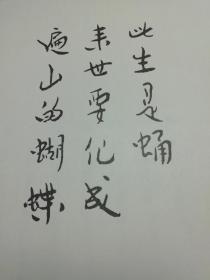 此生是蛹
来世要化成
遍山的蝴蝶